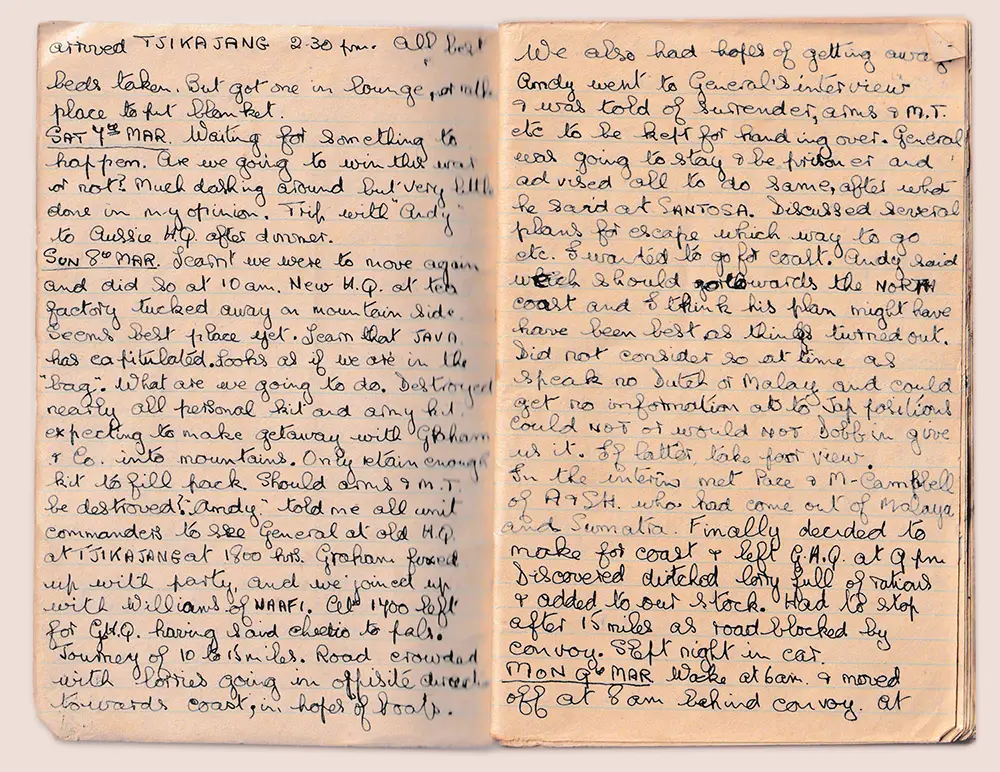 arrived TJIKAJANG 2.30 pm. All best
beds taken. But got one in lounge,
place to put blanket.
SAT 7th MAR. Waiting for something to
happen. Are we going to win this war
or not? Much dashing around but very little
done in my opinion. Trip with "Andy"
to Aussie H.Q. after dinner.
SUN 8th MAR. Learnt we were to move again
and did so at 10 am. New H.Q. at tea
factory tucked away on mountain side.
Seems best place yet. Learn that JAVA
has capitulated. Looks as if we are in the
"bag". What are we going to do. Destroyed
nearly all personal kit and army kit,
expecting to make getaway with Graham
& Co. into mountains. Only retain enough
kit to fill pack. Should arms & M.T.
be destroyed? "Andy" told me all unit
commanders to see General at old H.Q.
at TJIKAJANG at 1800 hrs. Graham fixed
up with party, and we joined up
with Williams of NAAFI. 1700 left
for G.H.Q. having said cheerio to pals.
Journey of 10 to 15 miles. Road crowded
with lorries going in opposite direction
towards coast, in hopes of boats.
We also had hopes of getting away
Andy went to General's interview
& was told of surrender, arms & M.T.
etc to be kept for handing over. General
was going to stay & be prisoner and
advised all to do same, after what
he said at SANTOSA. Discussed several
plans for escape which way to go
etc. I wanted to go for coast. Andy said
we should go towards the NORTH
coast and I think his plan might have
have been best as things turned out.
Did not consider so at time as
speak no Dutch or Malay and could
get no information as to Jap positions
could NOT or would NOT Dobbin give
us it. If latter, take poor view.
In the interim met Pace & M-Campbell
of A & SH. who had come out of Malaya
and Sumatra. Finally decided to
make for coast & left G.H.Q. at 9 pm
Discovered ditched lorry full of rations
& added to our stock. Had to stop
after 15 miles as road blocked by
convoy. Slept night in car.
MON 9th MAR Wake at 6am. & moved
off at 8 am behind convoy. at